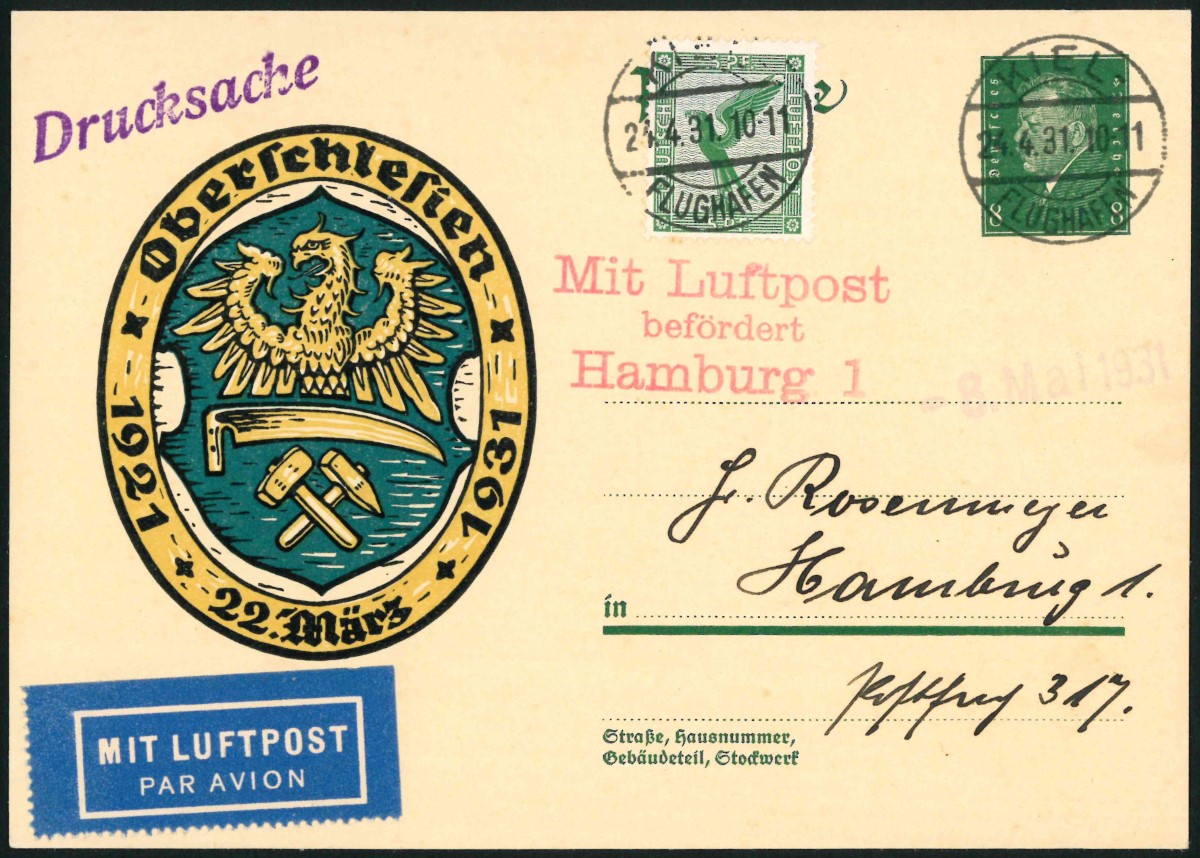 Drucksache
Oberschlesien
1921
1931
22. März
MIT LUFTPOST
PAR AVION
24.4.31.10-11
FLUGHAFEN
LUFTPOST
KIEL
24.4.31.10-11
FLUGHAFEN
8
8
Mit Luftpost
befördert
Hamburg 1
- 8. Mai 1931
Rosenmeyer
Hamburg 1.
in
317.
Straße, Hausnummer,
Gebäudeteil, Stockwerk